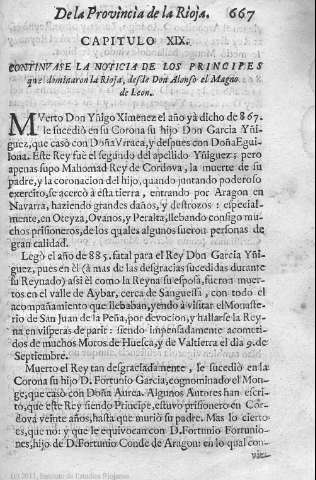 De la Provincia de la Rioja. 667
CAPITULO XIX.
CONTINVASE LA NOTICIA DE LOS PRINCIPES
que dominaron la Rioja, desde Don Alonso el Magno
de Leon.
MVerto Don Yñigo Ximenez el año yà dicho de 867.
le sucediò en su Corona su hijo Don Garcia Yñi-
guez, que casò con Doña Vrraca, y despues con Doña Egui-
lona. Este Rey fue el segundo del apellido Yñiguez; pero
apenas supo Mahomad Rey de Cordova, la muerte de su
padre, y la coronacion del hijo, quando juntando poderoso
exercito, se acercò à esta tierra, entrando por Aragon en
Navarra, haziendo grandes daños, y destrozos: especial-
mente, en Oteyza, Ovanos, y Peralta, llebando consigo mu-
chos prisioneros, de los quales algunos fueron personas de
gran calidad.
Legò el año de 885. fatal para el Rey Don Garcia Yñi-
guez, pues en èl (à mas de las desgracias sucedidas durante
su Reynado) assi èl como la Reyna su esposa, fueron muer-
tos en el valle de Aybar, cerca de Sanguessa, con todo el
acompañamiento que llebaban, yendo à visitar el Monaste-
rio de San Juan de la Peña, por devocion, y hallarse la Rey-
na en visperas de parir: siendo impensadamente acometi-
dos de muchos Moros de Huesca, y de Valtierra el dia 9. de
Septiembre.
Muerto el Rey tan desgraciadamente, le sucediò en la
Corona su hijo D. Fortunio Garcia, cognominado el Mon-
ge, que casò con Doña Aurea. Algunos Autores han escri-
to, que este Rey siendo Principe, estuvo prisionero en Cor-
dova veinte años, hasta que murio su padre. Mas lo cierto
es, que no: y que le equivocan con D. Fortunio Fortunio-
nes, hijo de D. Fortunio Conde de Aragon: en lo qual con-
(c) 2011, Instituto de Estudios Riojanos